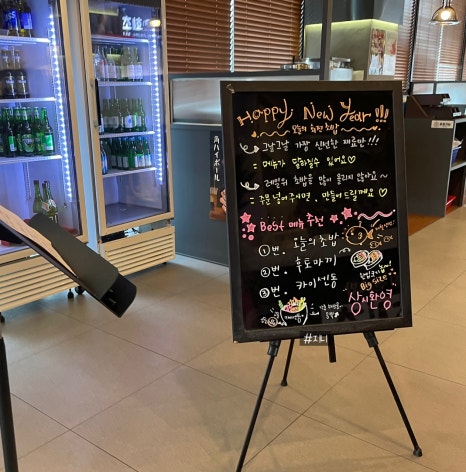 Happy New Year!!!
오늘의 회전초밥
그날그날 가장 신선한 재료만!!!
메뉴가 달라질수 있어요♡
레일위 초밥을 많이 올리지 않아요~
주문 넣어주시면, 만들어드릴께요♡
Best 메뉴 추천
①번. 오늘의 초밥
②번. 후토마끼
③번. 카이센동
Big size
상시환영
角ハイボール